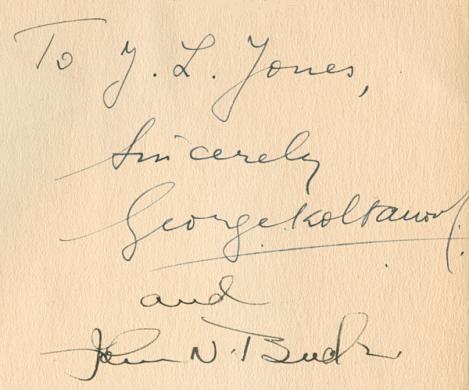 To J. L. Jones,
Sincerely
George Koltanowski
and
John N. Buck